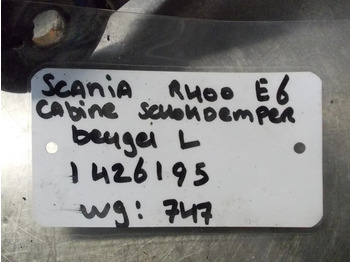 Scania R400 E6
Cabine schokdemper
beugel L
1426195
wg: 747